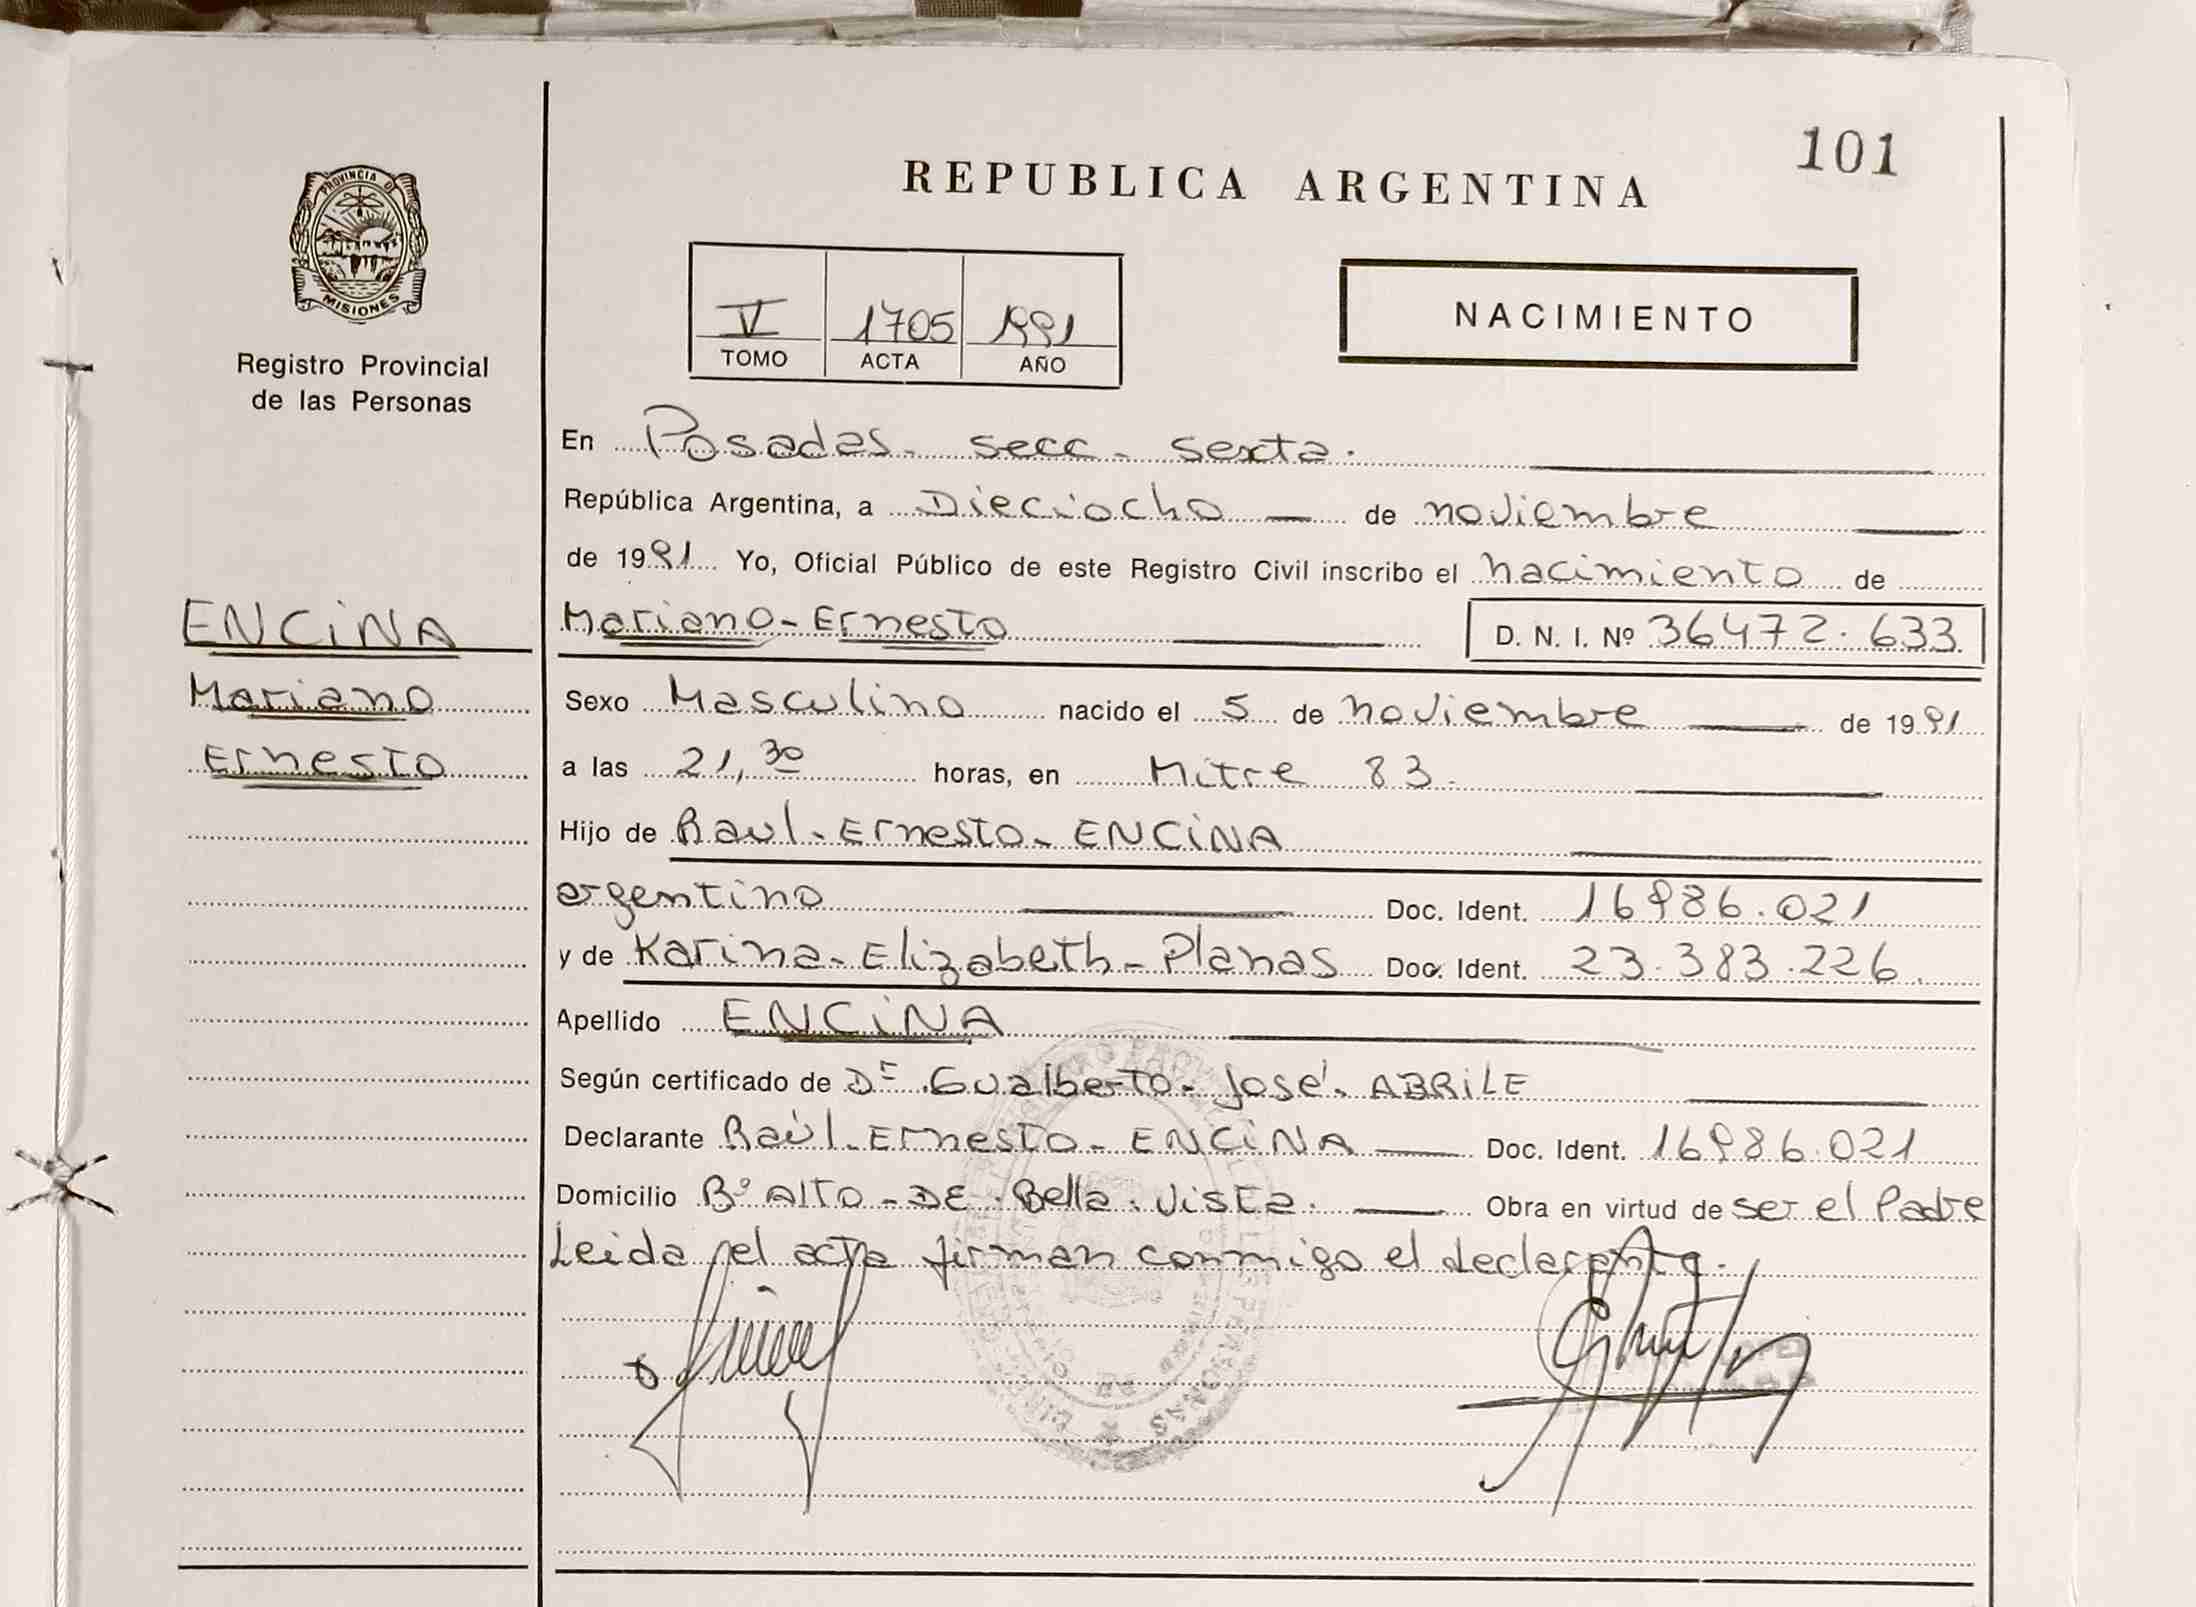 101
REPUBLICA ARGENTINA
PROVINCIA D
MISIONES
Registro Provincial
de las Personas
V 1705 1991
TOMO ACTA AÑO
NACIMIENTO
En Posadas - secc - sexta.
República Argentina, a Dieciocho — de noviembre —
de 1991 Yo, Oficial Público de este Registro Civil inscribo el nacimiento de
Mariano - Ernesto — D. N. I. Nº 36472.633
ENCINA
Mariano
Ernesto
Sexo Masculino nacido el 5 de noviembre — de 1991
a las 21,30 horas, en Mitre 83.
Hijo de Raul - Ernesto - ENCINA
argentino — Doc. Ident. 16986.021
y de Karina - Elizabeth - Planas Doc. Ident. 23.383.226.
Apellido ENCINA
Según certificado de Dr. Gualberto - José - ABRILE
Declarante Raúl - Ernesto - ENCINA — Doc. Ident. 16986.021
Domicilio Bº ALTO - DE - Bella - Vista. — Obra en virtud de ser el Padre
Leida el acta firman conmigo el declarante.